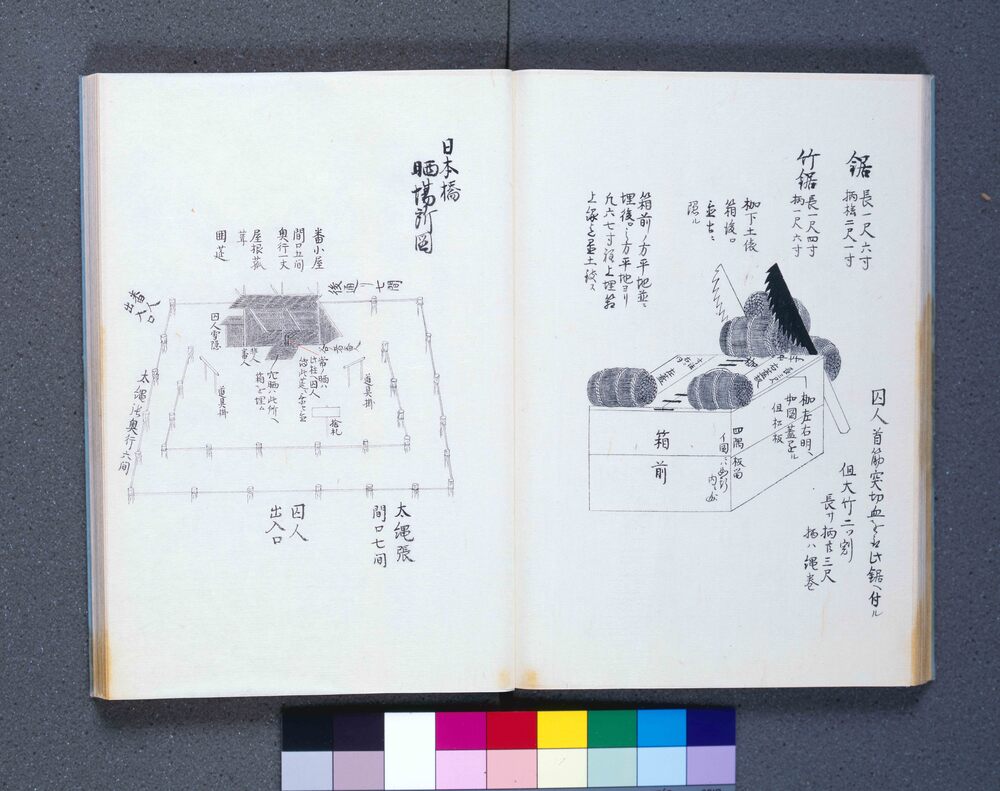 鋸 長一尺六寸
柄 二尺一寸
竹鋸 長一尺四寸
柄一尺六寸
枷下土俵
箱後ロ
照ル
箱前ノ方平地並ニ
埋後ロノ方平地ヨリ
凡六七寸程上埋箱
囚人首筋突切血ヲ
鋸ヘ付ル
但大竹二ツ割
長サ柄共三尺
柄ハ縄巻
枷左右明ヘ
如図蓋足ル
但松板
箱前
四隅板
日本橋
晒場所図
番小屋
間口五間
奥行一丈
屋根菰
葺
囲莚
後通リ七間
番人
出入口
囚人雪隠
番人
非人
穴晒ハ此所ヘ
箱ヲ埋ム
道具掛
道具掛
捨札
太縄張奥行六間
太縄張
間口七間
囚人
出入口